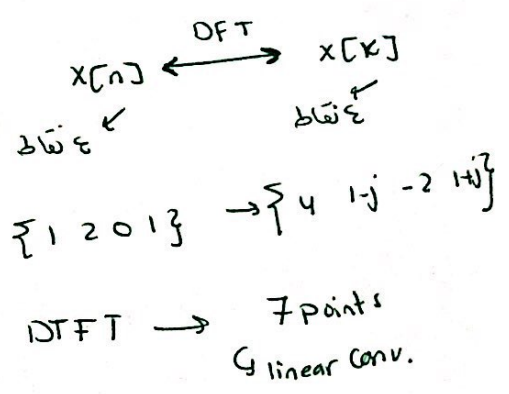 DFT
x[n] ⟷ x[k]
نقاط ع نقاط ع
{1 2 0 1} → {4 1-j -2 1+j}
DTFT → 7 points
↳ linear conv.